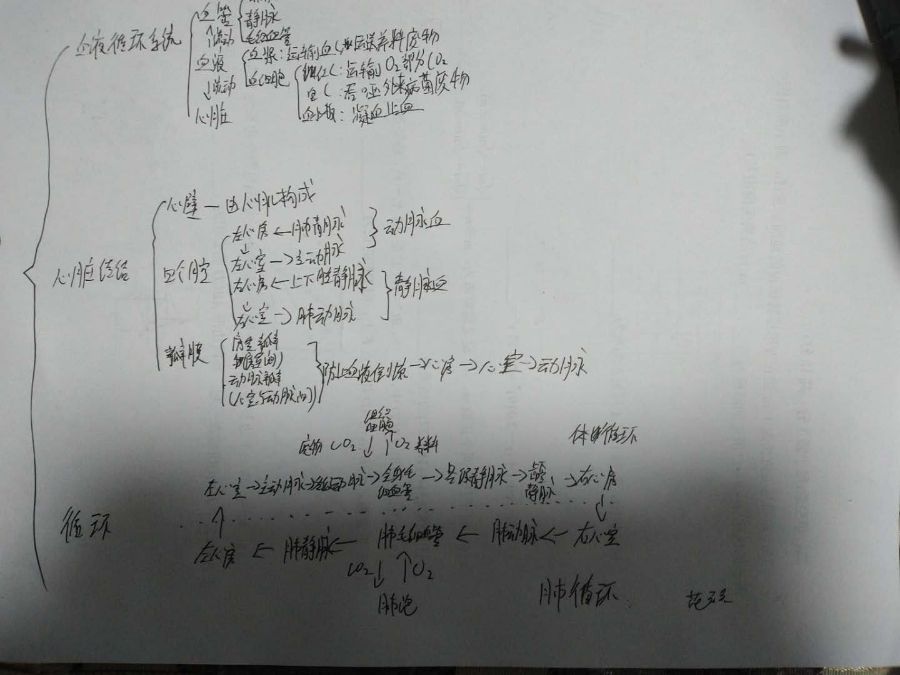 血管
静脉
毛细血管
血液循环系统
↑流动
血液
血浆:运输血C 运送养料废物
血细胞
红C:运输O2部分CO2
白C:吞噬外来病菌废物
↓流动
血小板:凝血止血
心脏
心壁—由心肌构成
左心房←肺静脉
动脉血
↓
左心室→主动脉
心脏结构
四个腔
右心房←上下腔静脉
静脉血
↓
右心室→肺动脉
瓣膜
房室瓣
动脉瓣
(心室与动脉间)
防止血液倒流→心房→心室→动脉
组织
细胞
废物 CO2↓ ↑O2 养料
体循环
左心室→主动脉→各级动脉→全身毛细血管→各级静脉→上下腔静脉→右心房
↑
↓
循环
左心房←肺静脉←肺毛细血管←肺动脉←右心室
CO2↓ ↑O2
肺泡
肺循环